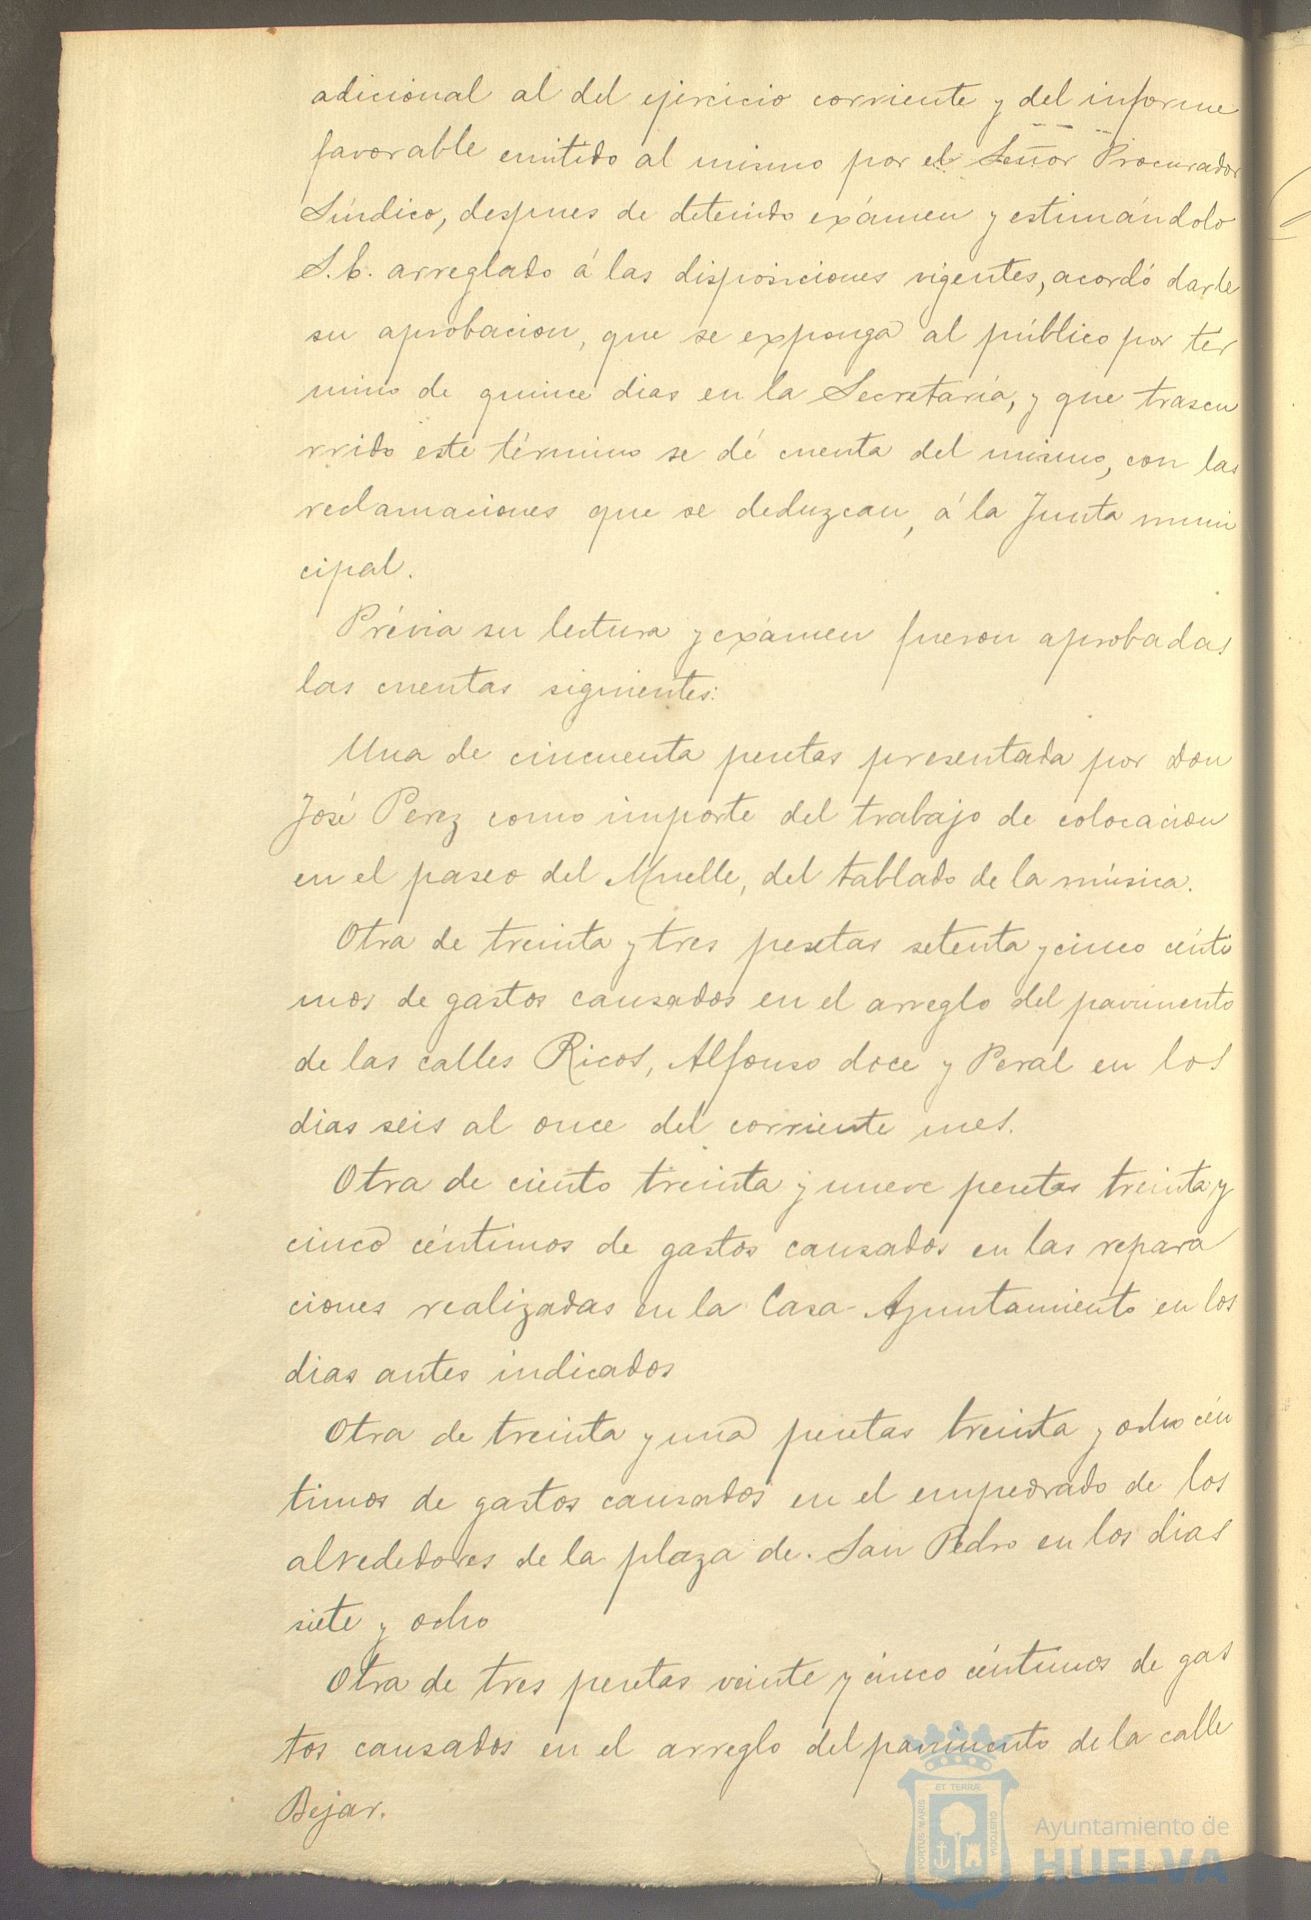 adicional al del ejercicio corriente y del informe
favorable emitido al mismo por el Señor Procurador
Síndico, despues de detenido exámen y estimándolo
S. E. arreglado á las disposiciones vigentes, acordó darle
su aprobacion, que se exponga al público por tér
mino de quince dias en la Secretaría, y que trascu
rrido este término se dé cuenta del mismo, con las
reclamaciones que se deduzcan, á la Junta muni
cipal.
Prévia su lectura y exámen fueron aprobadas
las cuentas siguientes:
Una de cincuenta pesetas presentada por Don
José Perez como importe del trabajo de colocacion
en el paseo del Muelle, del tablado de la música.
Otra de treinta y tres pesetas setenta y cinco cénti
mos de gastos causados en el arreglo del pavimento
de las calles Ricos, Alfonso doce y Peral en los
dias seis al once del corriente mes.
Otra de ciento treinta y nueve pesetas treinta y
cinco céntimos de gastos causados en las repara
ciones realizadas en la Casa-Ayuntamiento en los
dias antes indicados
Otra de treinta y una pesetas treinta y ocho cén
timos de gastos causados en el empedrado de los
alrededores de la plaza de San Pedro en los dias
siete y ocho
Otra de tres pesetas veinte y cinco céntimos de gas
tos causados en el arreglo del pavimento de la calle
Bejar.
PORTUS MARIS ET TERRÆ CUSTODIA
Ayuntamiento de
HUELVA